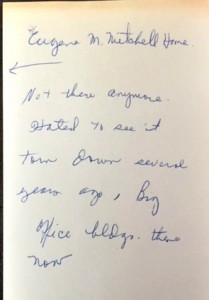 Eugene M. Mitchell Home.
Not there anymore.
Hated to see it
torn down several
years ago, Big
Office bldgs. there
now